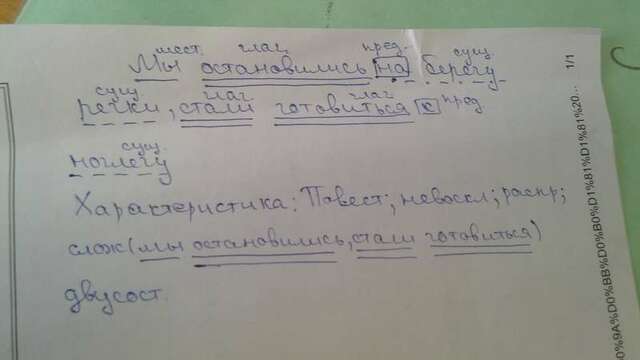 мест. глаг. пред. сущ.
Мы остановились на берегу
сущ. глаг. глаг.
речки, стали готовиться к пред.
сущ.
ноглегу
Характеристика: Повест; невоскл; распр;
слож(мы остановились, стали готовиться)
двусост.
1/1
0%9A%D0%BB%D0%B0%D1%81%D1%81%20...